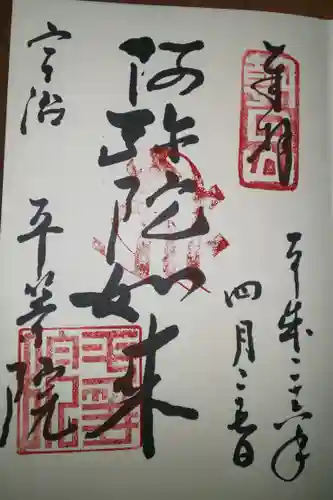 奉拝
平成二十六年
四月二五日
阿弥陀如来
宇治 平等院